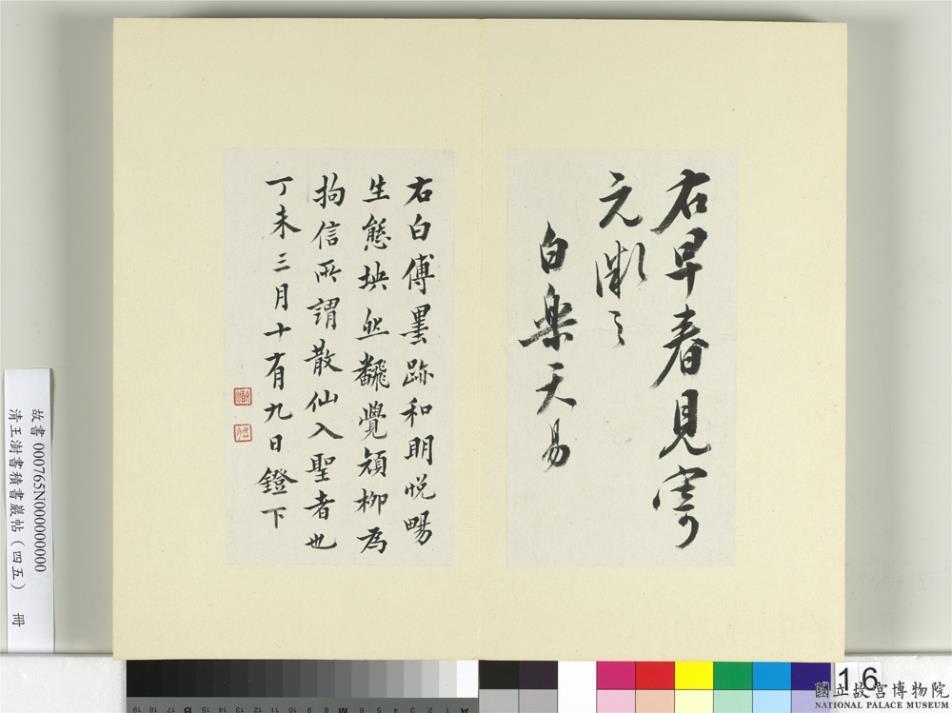 右早春見寄
元微之
白樂天易
右白傅墨跡和明悅暢
生態坱然飜覺顏柳為
拘信所謂散仙入聖者也
丁未三月十有九日鐙下
故書 000765N000000000
清王澍書積書巖帖(四五) 冊
16
國立故宮博物院
NATIONAL PALACE MUSEUM